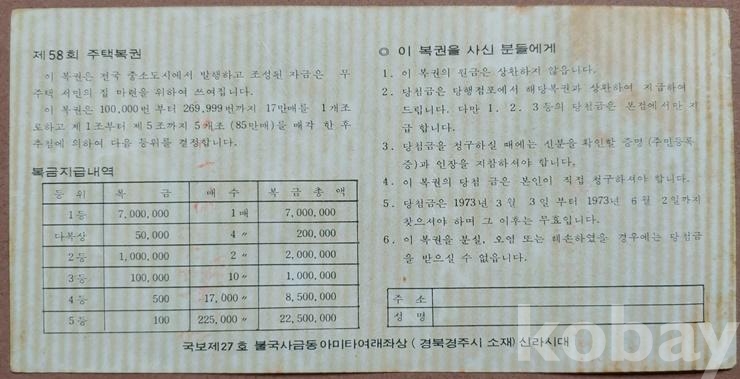 제58회 주택복권
이 복권은 전국 중소도시에서 발행하고 조성된 자금은 무
주택 서민의 집 마련을 위하여 쓰여집니다.
이 복권은 100,000번 부터 269,999번까지 17만매를 1개조
로하고 제1조부터 제5조까지 5개조 (85만매)를 매각 한 후
추첨에 의하여 다음 등위를 결정합니다.
복금지급내역
등 위 복 금 매 수 복 금 총 액
1등 7,000,000 1매 7,000,000
다복상 50,000 4〃 200,000
2등 1,000,000 2〃 2,000,000
3등 100,000 10〃 1,000,000
4등 500 17,000〃 8,500,000
5등 100 225,000〃 22,500,000
◎ 이 복권을 사신 분들에게
1. 이 복권의 원금은 상환하지 않읍니다.
2. 당첨금은 당행점포에서 해당복권과 상환하여 지급하여
드립니다. 다만 1. 2. 3등의 당첨금은 본점에서만 지
급 합니다.
3. 당첨금을 청구하실 때에는 신분을 확인할 증명 (주민등록
증)과 인장을 지참하셔야 합니다.
4. 이 복권의 당첨 금은 본인이 직접 청구하셔야 합니다.
5. 당첨금은 1973년 3월 3일 부터 1973년 6월 2일까지
찾으셔야 하며 그 이후는 무효입니다.
6. 이 복권을 분실, 오염 또는 훼손하였을 경우에는 당첨금
을 받으실 수 없읍니다.
주 소
성 명
국보제27호 불국사금동아미타여래좌상 (경북경주시 소재) 신라시대
kobay